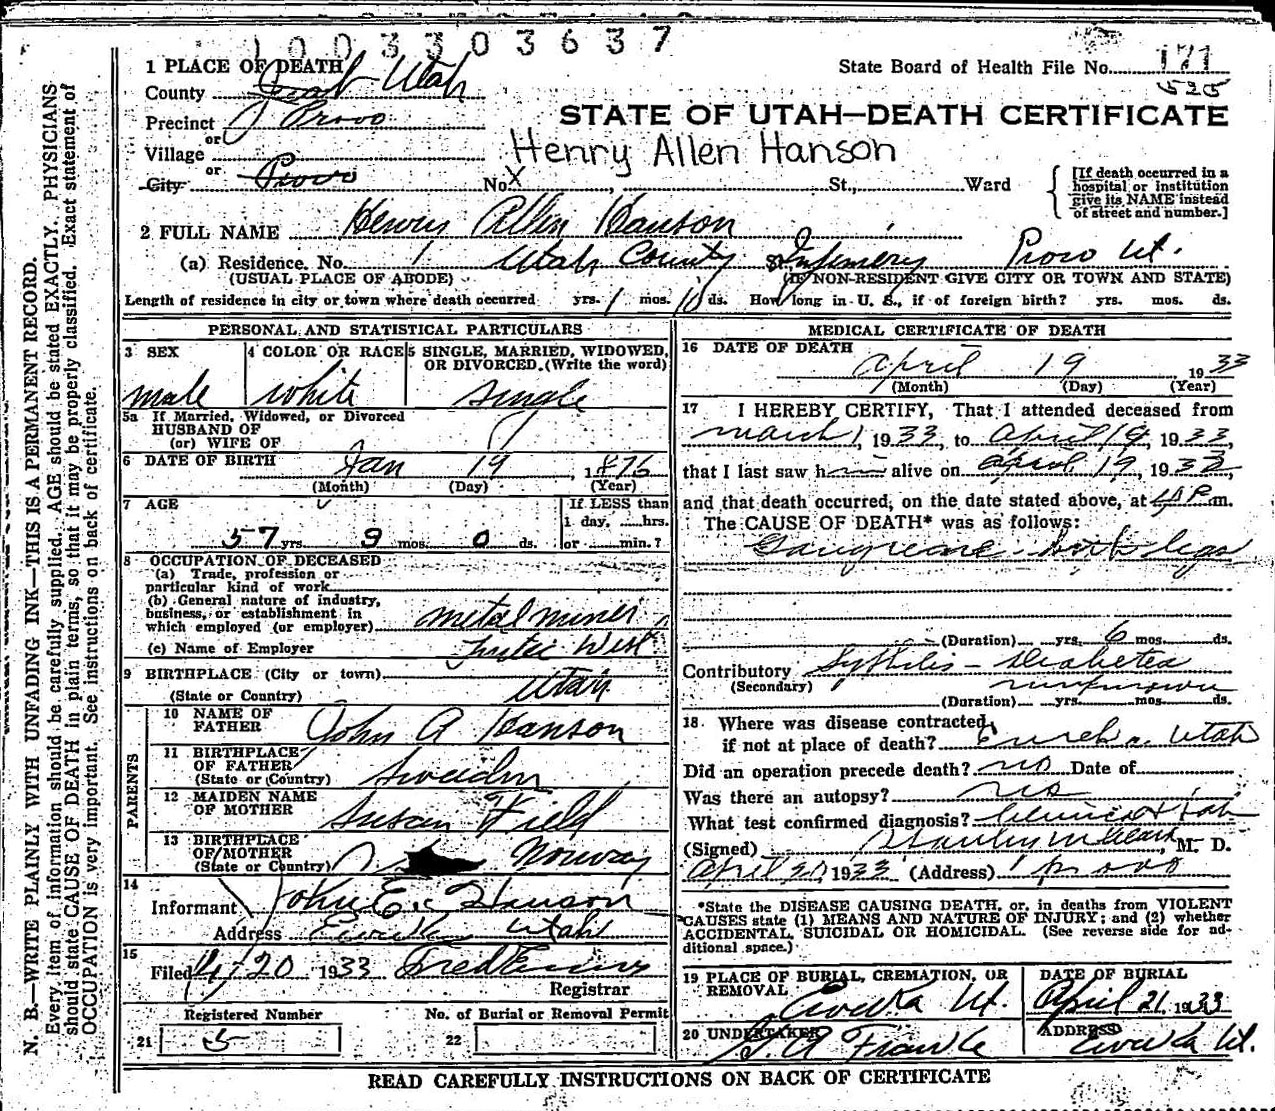 1003303637
1 PLACE OF DEATH
County Utah
State Board of Health File No. 171
525
Precinct Provo
or
Village
or
City Provo No. X St., Ward
STATE OF UTAH—DEATH CERTIFICATE
Henry Allen Hanson
[If death occurred in a hospital or institution give its NAME instead of street and number.]
2 FULL NAME Henry Allen Hanson
(a) Residence. No. 1 Utah County St. Infirmery Provo Ut.
(USUAL PLACE OF ABODE) (IF NON-RESIDENT GIVE CITY OR TOWN AND STATE)
Length of residence in city or town where death occurred yrs. 1 mos. 10 ds. How long in U. S., if of foreign birth? yrs. mos. ds.
PERSONAL AND STATISTICAL PARTICULARS
3 SEX
male
4 COLOR OR RACE
white
5 SINGLE, MARRIED, WIDOWED,
OR DIVORCED. (Write the word)
single
5a If Married, Widowed, or Divorced
HUSBAND OF
(or) WIFE OF
6 DATE OF BIRTH Jan 19 1876
(Month) (Day) (Year)
7 AGE
57 yrs. 9 mos. 0 ds.
If LESS than
1 day, hrs.
or min.?
8 OCCUPATION OF DECEASED
(a) Trade, profession or
particular kind of work
(b) General nature of industry,
business, or establishment in
which employed (or employer) metal miner
(c) Name of Employer Tintic West
9 BIRTHPLACE (City or town)
(State or Country) Utah
PARENTS
10 NAME OF
FATHER John A Hanson
11 BIRTHPLACE
OF FATHER
(State or Country) Sweeden
12 MAIDEN NAME
OF MOTHER Susan Field
13 BIRTHPLACE
OF MOTHER
(State or Country) Norway
14
Informant John E. Hanson
Address Eureka Utah
15
Filed 4/20 1933
Registrar
Registered Number
21 5
No. of Burial or Removal Permit
22
MEDICAL CERTIFICATE OF DEATH
16 DATE OF DEATH
April 19 1933
(Month) (Day) (Year)
17 I HEREBY CERTIFY, That I attended deceased from
March 1, 1933, to April 19, 1933,
that I last saw h alive on April 19, 1933
and that death occurred, on the date stated above, at P m.
The CAUSE OF DEATH* was as follows:
Gangreane - both legs
(Duration) yrs. 6 mos. ds.
Contributory Syphilis - Diabetea
(Secondary) unknown
(Duration) yrs. mos. ds.
18. Where was disease contracted,
if not at place of death? Eureka, Utah
Did an operation precede death? no Date of
Was there an autopsy? no
What test confirmed diagnosis? Clinical + Lab
(Signed) Stanley M Clark, M. D.
April 20, 1933 (Address) Provo
*State the DISEASE CAUSING DEATH, or, in deaths from VIOLENT
CAUSES state (1) MEANS AND NATURE OF INJURY; and (2) whether
ACCIDENTAL, SUICIDAL OR HOMICIDAL. (See reverse side for ad-
ditional space.)
19 PLACE OF BURIAL, CREMATION, OR
REMOVAL Eureka Ut.
DATE OF BURIAL
April 21, 1933
20 UNDERTAKER
A Franke
ADDRESS
Eureka Ut.
READ CAREFULLY INSTRUCTIONS ON BACK OF CERTIFICATE
N. B.—WRITE PLAINLY WITH UNFADING INK—THIS IS A PERMANENT RECORD.
Every item of information should be carefully supplied. AGE should be stated EXACTLY. PHYSICIANS
should state CAUSE OF DEATH in plain terms, so that it may be properly classified. Exact statement of
OCCUPATION is very important. See instructions on back of certificate.